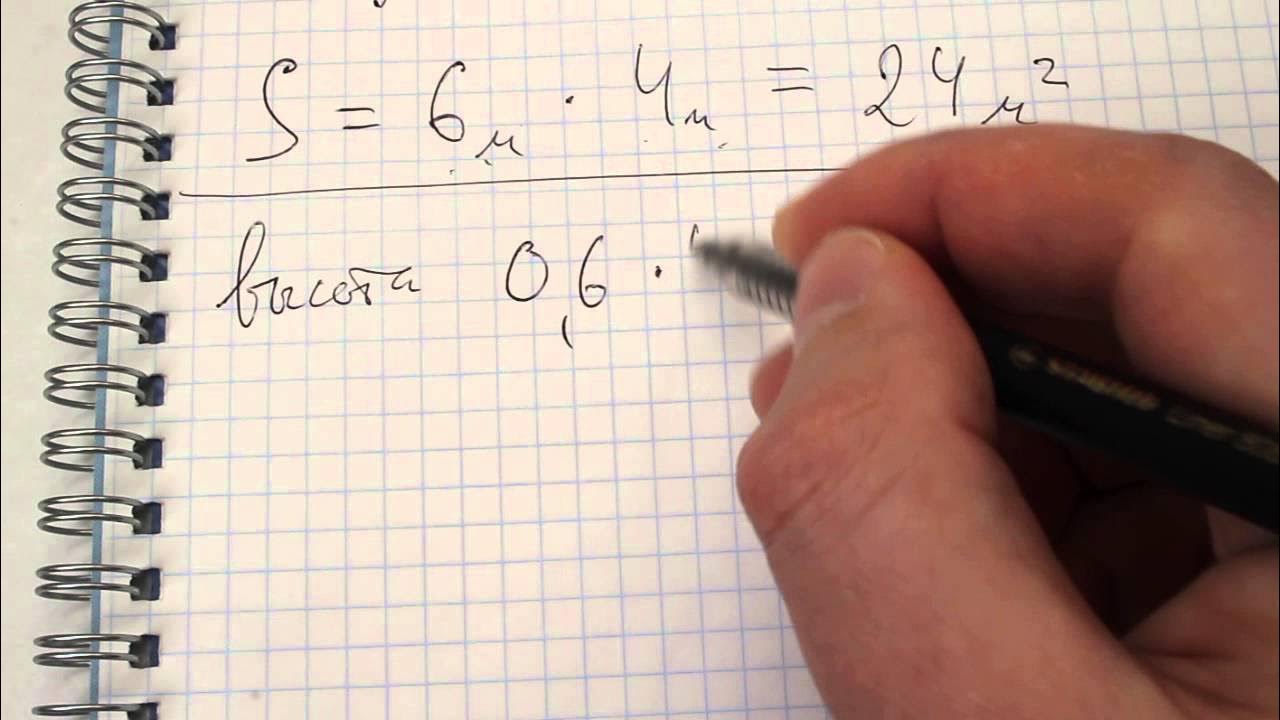 S = 6м · 4м = 24м²
высота 0,6 ·